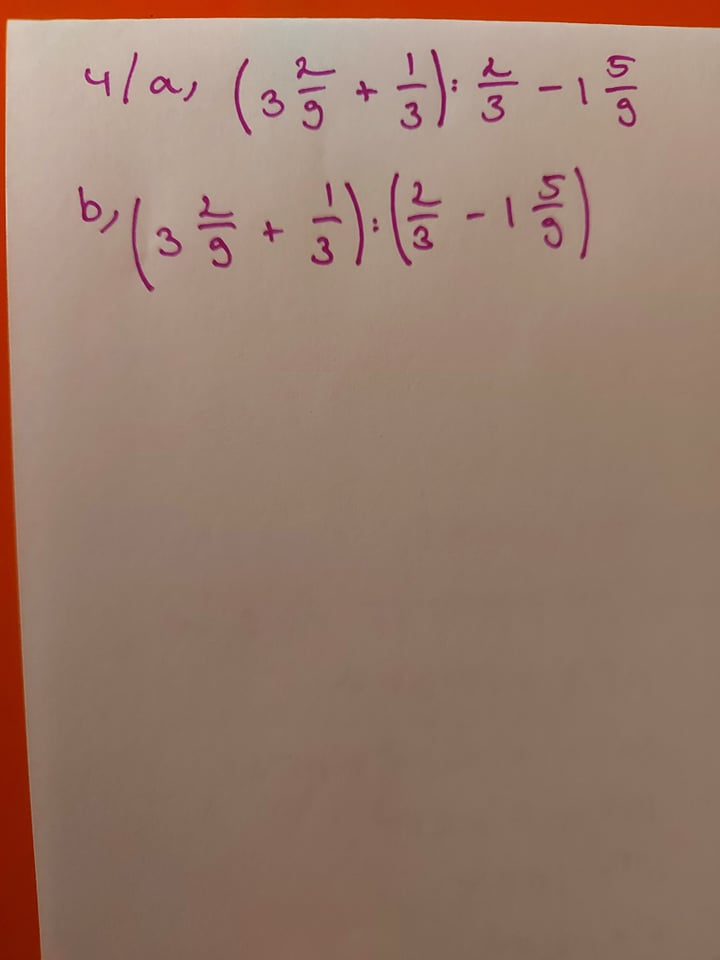 4/a, (3 2/9 + 1/3) : 2/3 - 1 5/9
b, (3 2/9 + 1/3) : (2/3 - 1 5/9)